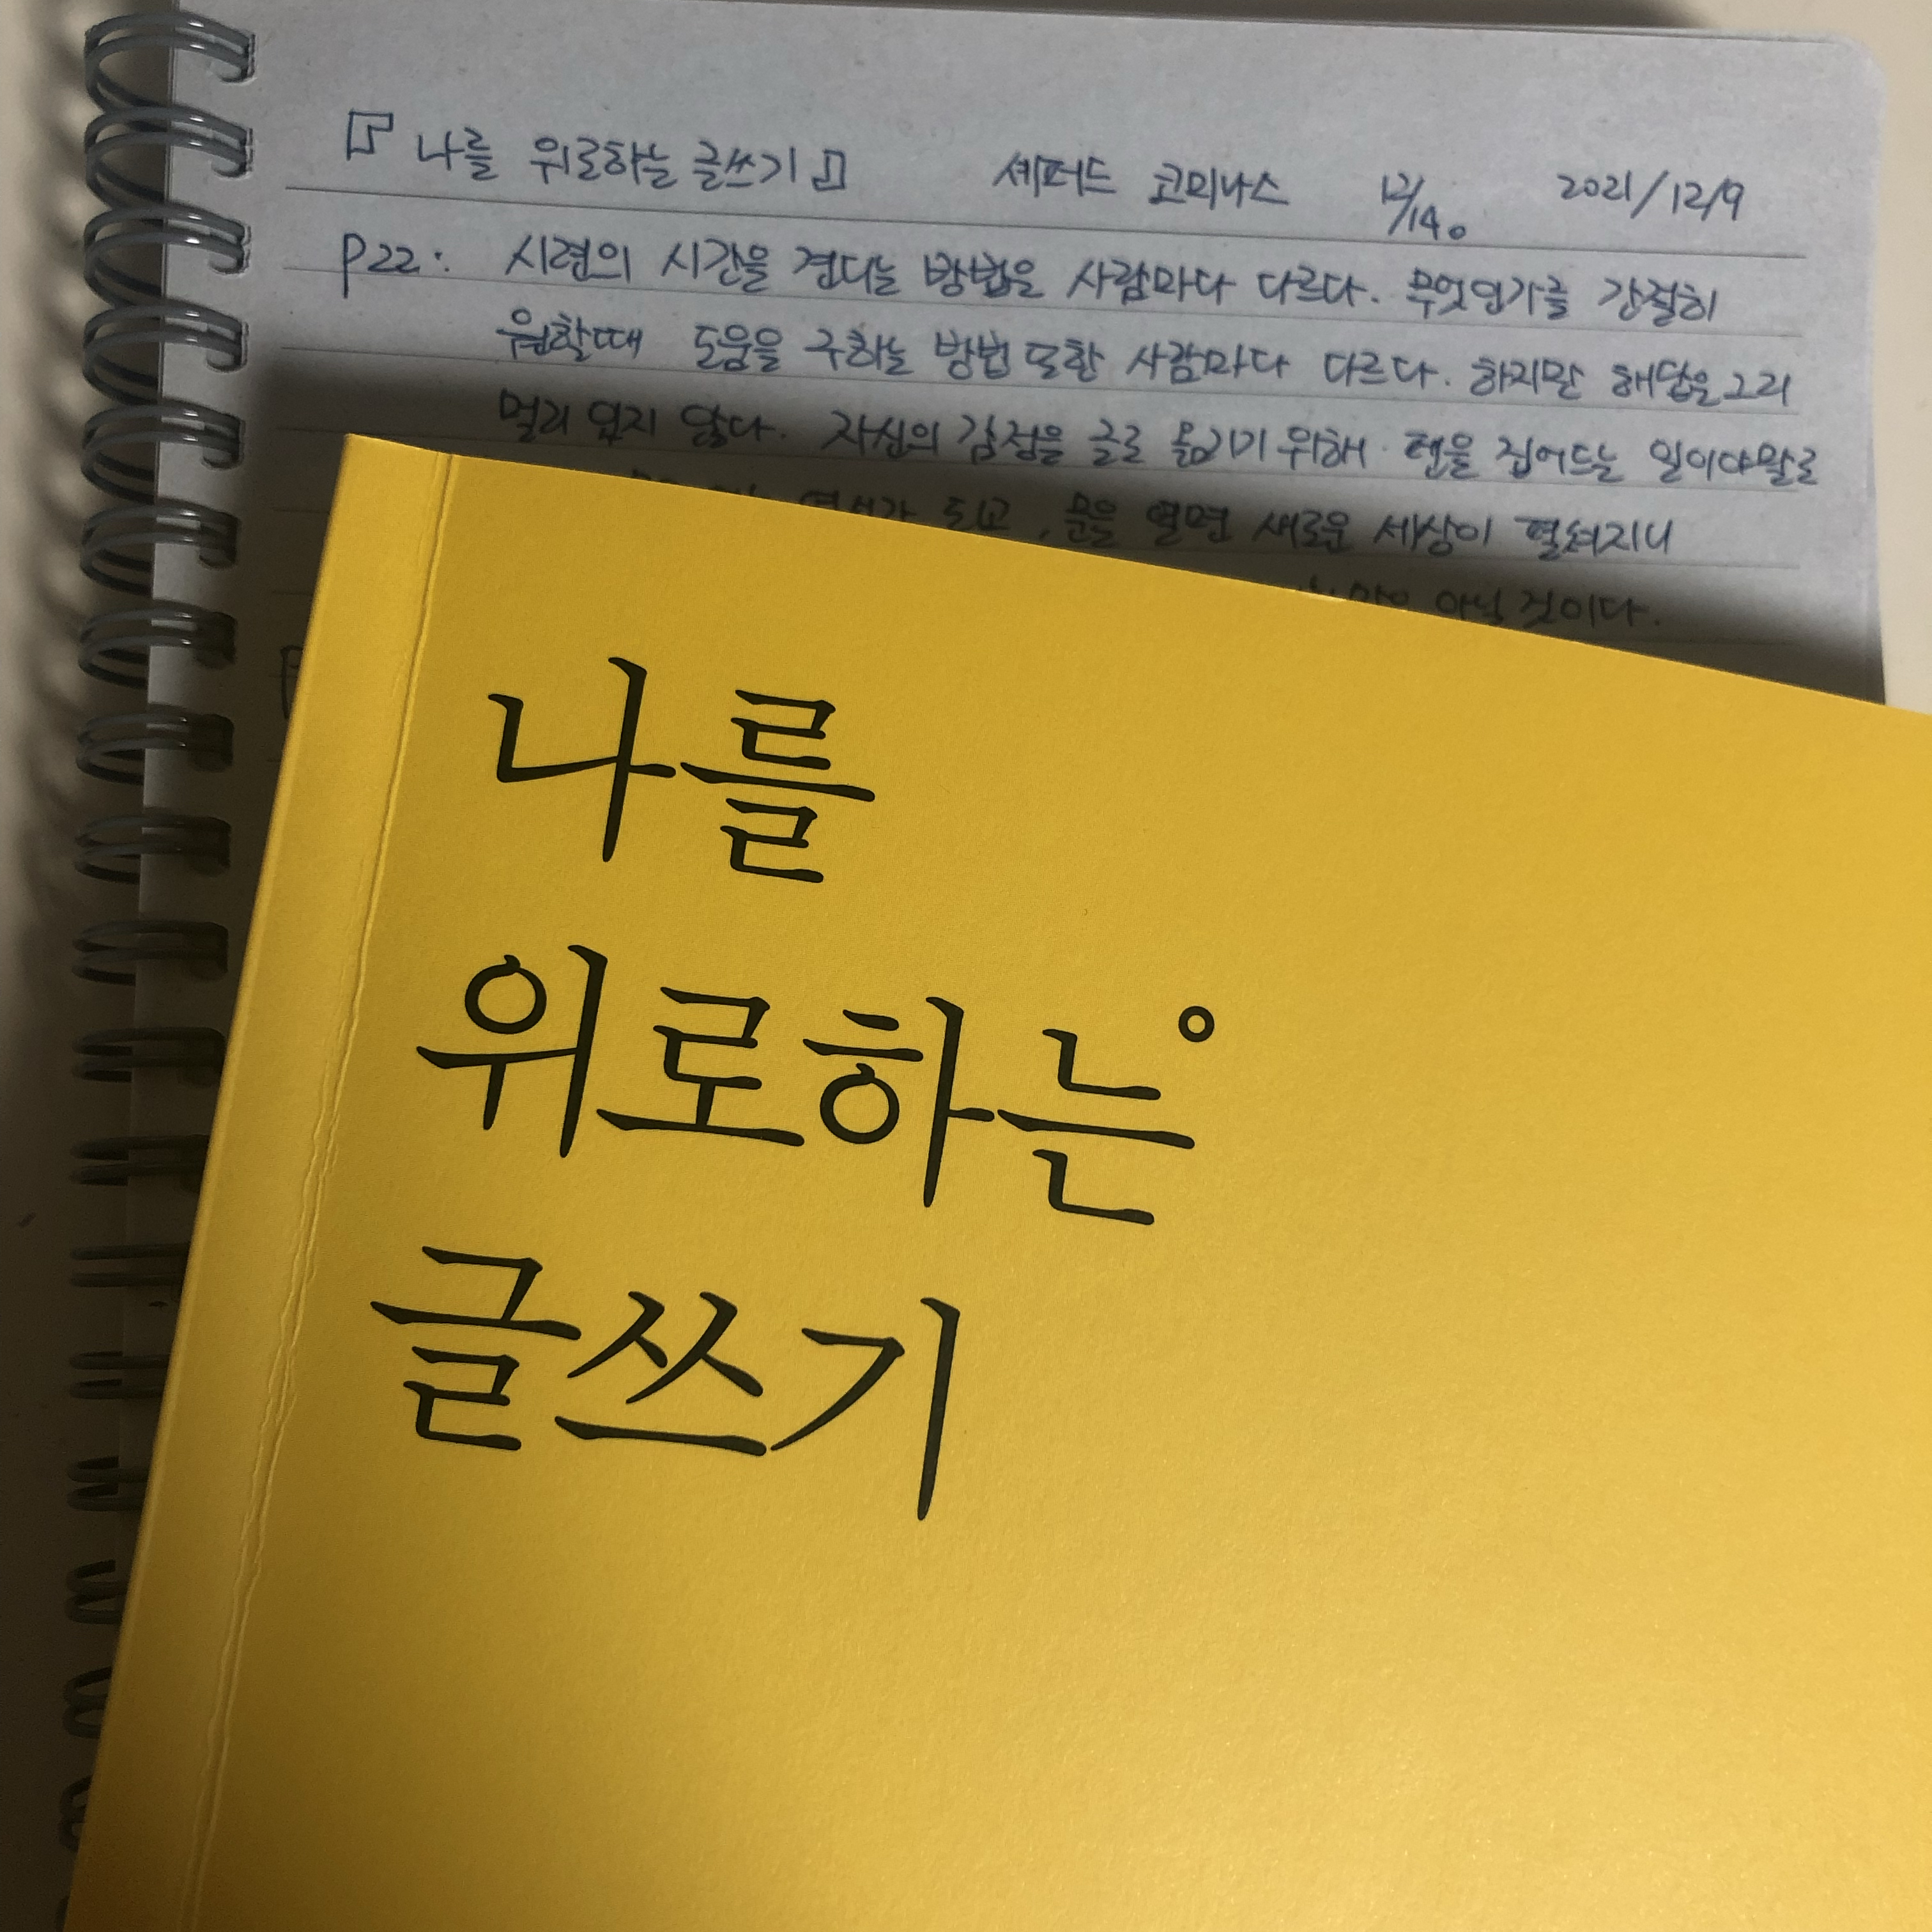 『나를 위로하는 글쓰기』 셰퍼드 코미나스 12/14。 2021/12/9
P22: 시련의 시간을 견디는 방법은 사람마다 다르다. 무엇인가를 간절히
원할때 도움을 구하는 방법 또한 사람마다 다르다. 하지만 해답은 그리
멀리 있지 않다. 자신의 감정을 글로 옮기기 위해 펜을 집어드는 일이야말로
되고, 문을 열면 새로운 세상이 펼쳐지니
아닐 것이다.
나를
위로하는
글쓰기